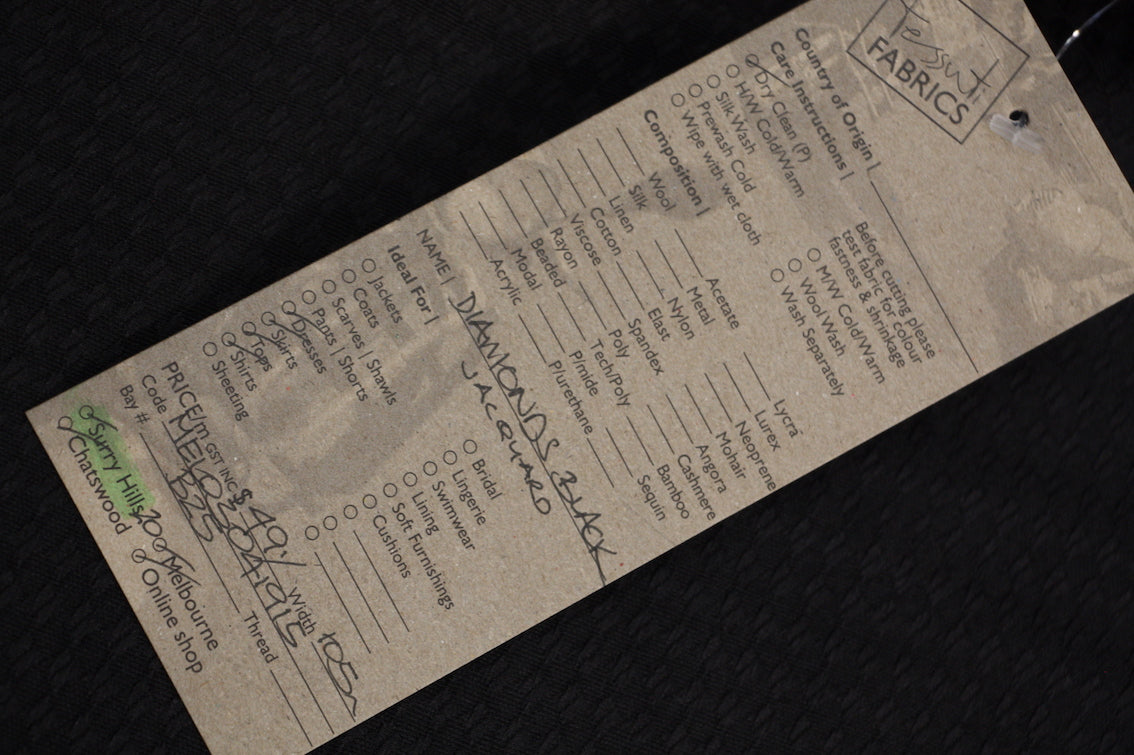 Tessuti
FABRICS
Country of Origin |
Care Instructions |
Dry Clean (P)
H/W Cold/Warm
Silk Wash
Prewash Cold
Wipe with wet cloth
Before cutting please
test fabric for colour
fastness & shrinkage
M/W Cold/Warm
Wool Wash
Wash Separately
Composition |
Wool
Silk
Linen
Cotton
Viscose
Rayon
Beaded
Modal
Acrylic
Acetate
Metal
Nylon
Elast
Spandex
Poly
Tech/Poly
P/mide
P/urethane
Lycra
Lurex
Neoprene
Mohair
Angora
Cashmere
Bamboo
Sequin
NAME | DIAMONDS BLACK
JACQUARD
Ideal For |
Jackets
Coats
Scarves | Shawls
Pants | Shorts
Dresses
Skirts
Tops
Shirts
Sheeting
Bridal
Lingerie
Swimwear
Lining
Soft Furnishings
Cushions
PRICE/m GST INC $49 Width
Code
Bay #: Thread
Surry Hills Melbourne
Chatswood Online shop